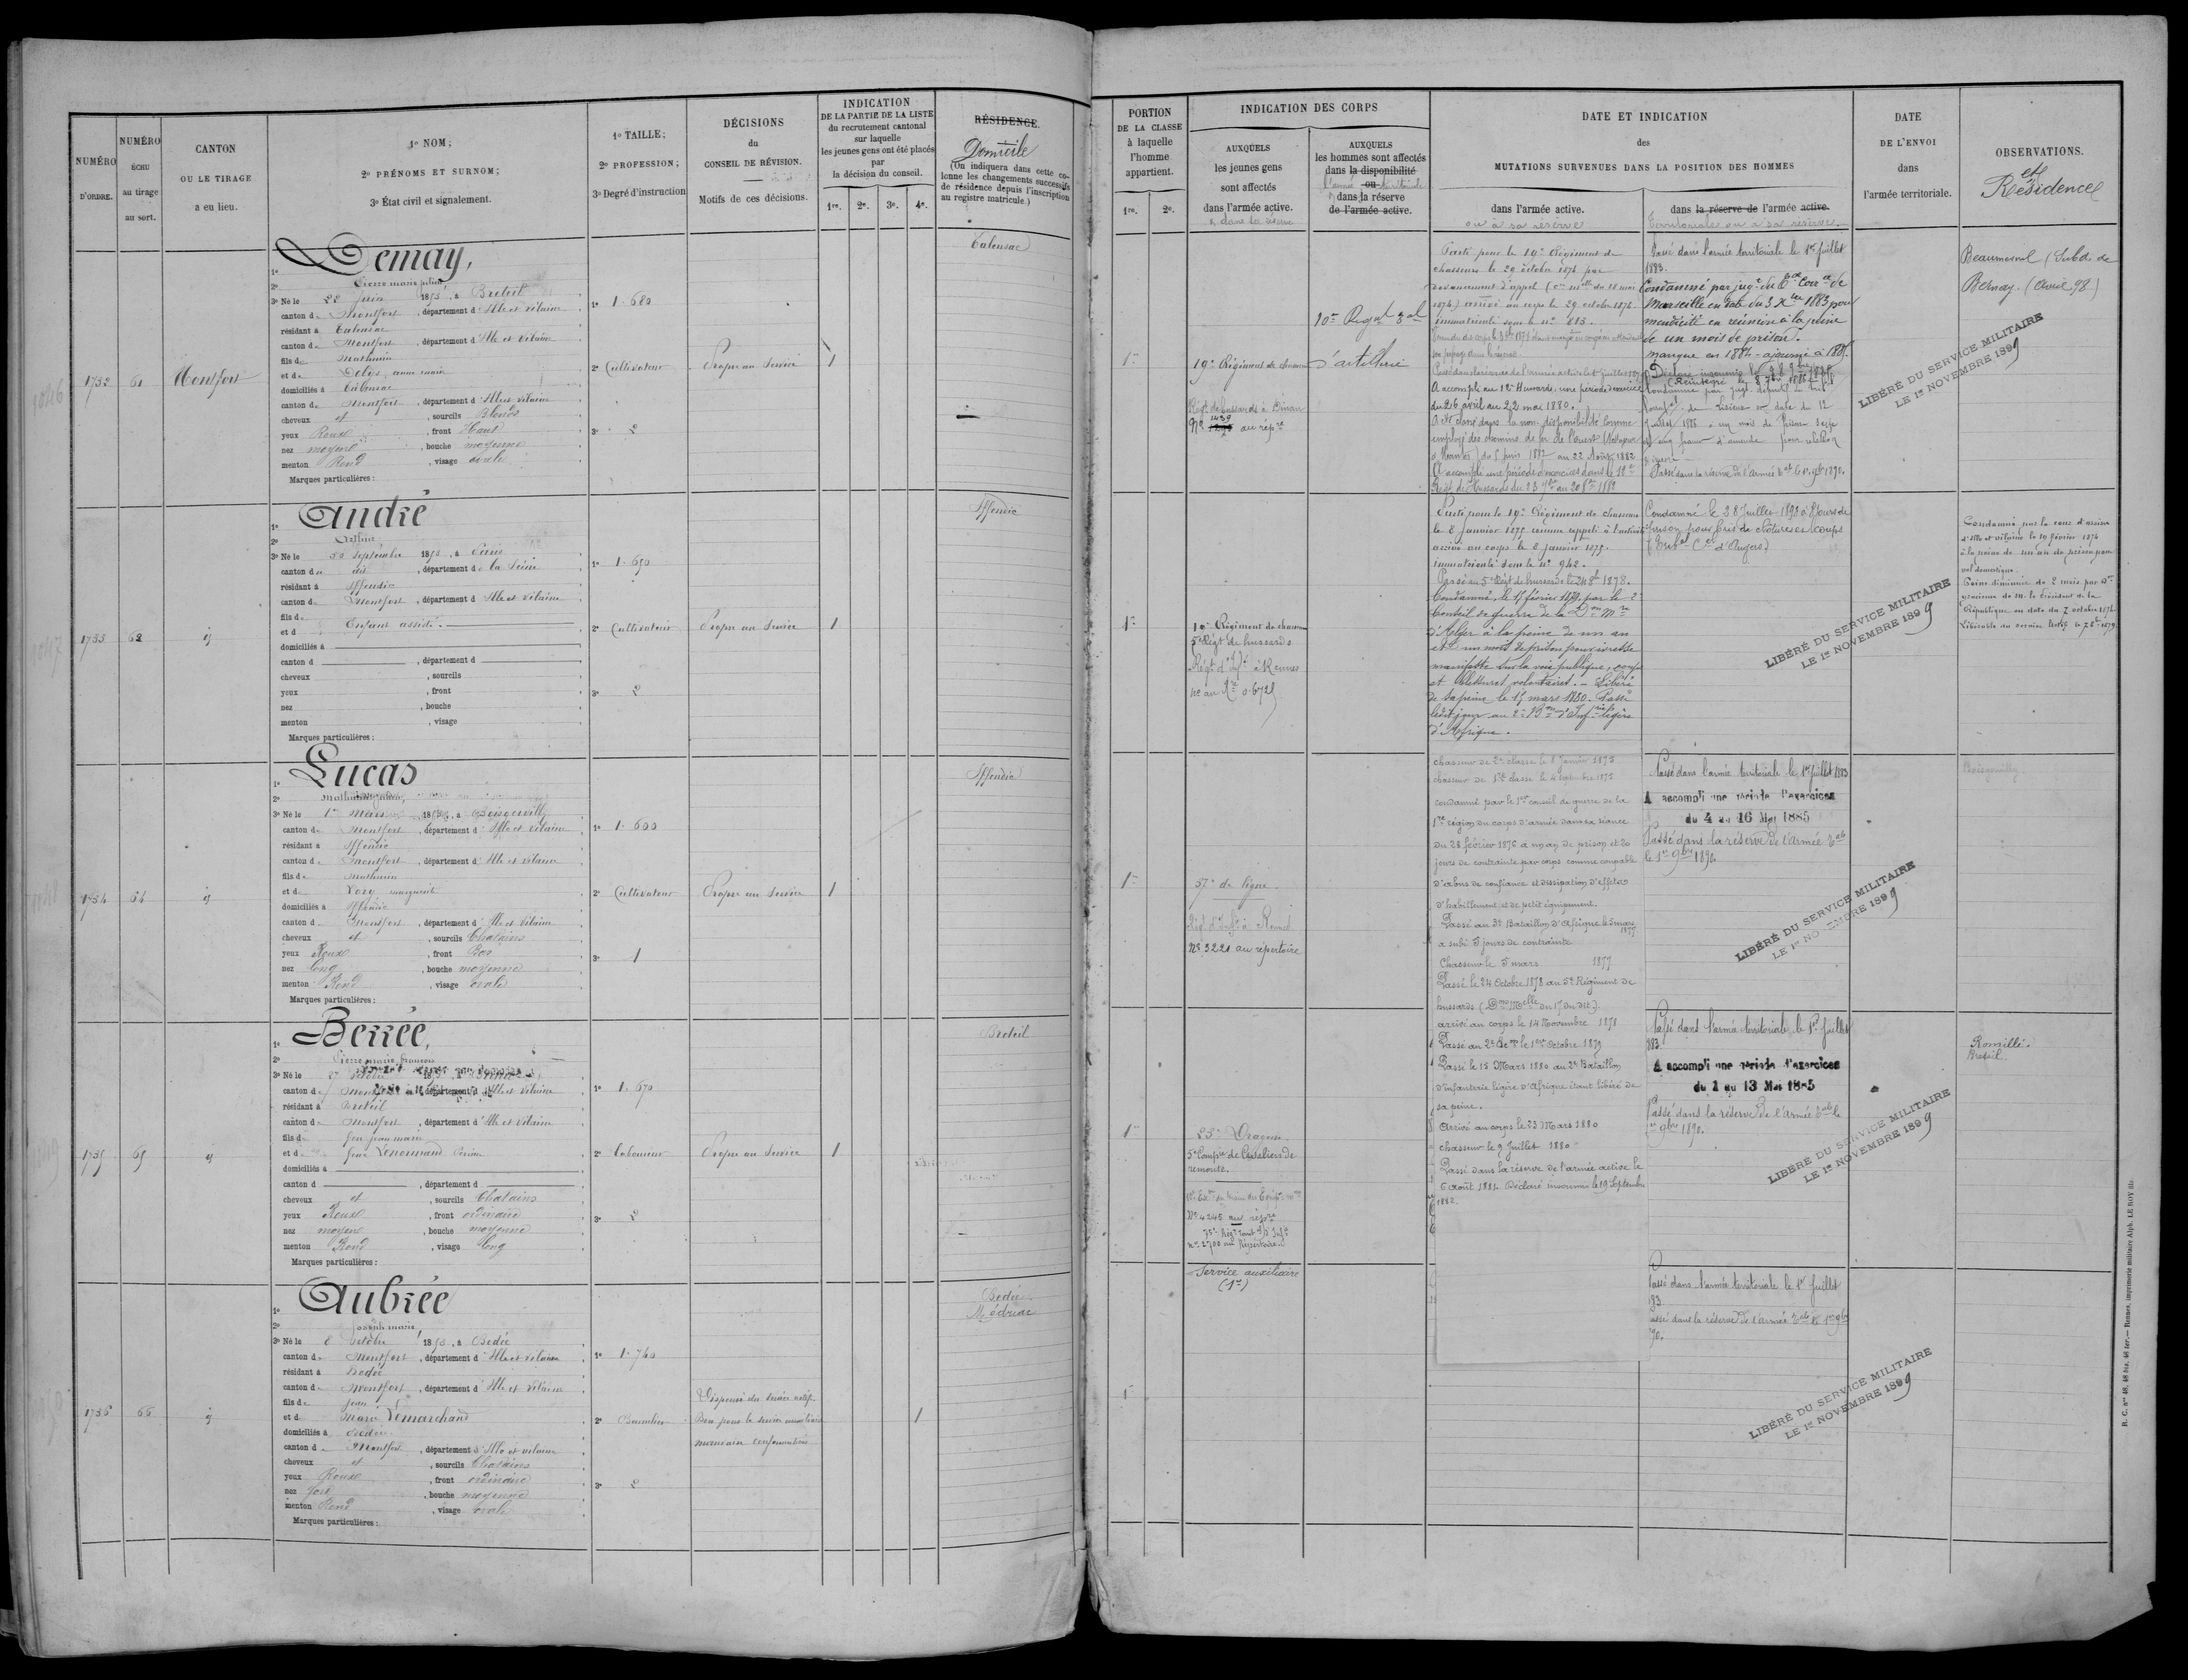 NUMÉRO
D'ORDRE.
NUMÉRO
ÉCHU
au tirage
au sort.
CANTON
OU LE TIRAGE
a eu lieu.
1º NOM;
2º PRÉNOMS ET SURNOM;
3º État civil et signalement.
1º TAILLE;
2º PROFESSION;
3º Degré d'instruction
DÉCISIONS
du
CONSEIL DE RÉVISION.
Motifs de ces décisions.
INDICATION
DE LA PARTIE DE LA LISTE
du recrutement cantonal
sur laquelle
les jeunes gens ont été placés
par
la décision du conseil.
1re. 2e. 3e. 4e.
RÉSIDENCE.
Domicile
(On indiquera dans cette co-
lonne les changements successifs
de résidence depuis l'inscription
au registre matricule.)
1732
61
Montfort
1º Demay,
2º Pierre marie julien
3º Né le 22 juin 1853, à Breteil
canton de Montfort, département d'Ille et vilaine
résidant à Talensac
canton de Montfort, département d'Ille et vilaine
fils de Mathurin
et de anne marie
domiciliés à Talensac
canton de Montfort, département d'Ille et vilaine
cheveux et, sourcils Blonds
yeux Roux, front Haut
nez moyen, bouche moyenne
menton Rond, visage ovale
Marques particulières:
1º 1.680
2º Cultivateur
3º 2
Propre au Service
1
Talensac
1733
62
id
1º André
2º Arthur
3º Né le 30 Septembre 1853, à Paris
canton de dit, département de la Seine
résidant à Iffendic
canton de Montfort, département d'Ille et vilaine
fils de
et d Enfant assisté.
domiciliés à
canton d, département d
cheveux, sourcils
yeux, front
nez, bouche
menton, visage
Marques particulières:
1º 1.650
2º Cultivateur
3º 2
Propre au Service
1
Iffendic
1734
64
id
1º Lucas
2º mathurin julien,
3º Né le 1er Mars 1853, à Boisgervilly
canton de Montfort, département d'Ille et vilaine
résidant à Iffendic
canton de Montfort, département d'Ille et vilaine
fils de Mathurin
et d marguerite
domiciliés à Iffendic
canton de Montfort, département d'Ille et vilaine
cheveux et, sourcils Chatains
yeux Roux, front Bas
nez long, bouche moyenne
menton Rond, visage ovale
Marques particulières:
1º 1.600
2º Cultivateur
3º 1
Propre au Service
1
Iffendic
1735
65
id
1º Berrée,
2º Pierre marie françois
3º Né le 27 octobre
canton de Montfort, département d'Ille et vilaine
résidant à Breteil
canton de Montfort, département d'Ille et vilaine
fils de feu jean marie
et de feue Lenormand
domiciliés à
canton d, département d
cheveux et, sourcils Chatains
yeux Roux, front ordinaire
nez moyen, bouche moyenne
menton Rond, visage long
Marques particulières:
1º 1.670
2º Laboureur
3º 2
Propre au Service
1
Breteil
1736
66
id
1º Aubrée
2º joseph marie,
3º Né le 8 octobre 1853, à Bedée
canton de Montfort, département d'Ille et vilaine
résidant à Bedée
canton de Montfort, département d'Ille et vilaine
fils de jean
et de Marie Lemarchand
domiciliés à Bedée
canton de Montfort, département d'Ille et vilaine
cheveux et, sourcils Chatains
yeux Roux, front ordinaire
nez fort, bouche moyenne
menton Rond, visage ovale
Marques particulières:
1º 1.740
2º
3º 2
Dispensé du service actif.
Bon pour le service auxiliaire
mauvaise conformation
1
Bedée
Médréac
PORTION
DE LA CLASSE
à laquelle
l'homme
appartient.
1re. 2e.
INDICATION DES CORPS
AUXQUELS
les jeunes gens
sont affectés
dans l'armée active.
& dans la réserve
AUXQUELS
les hommes sont affectés
dans la disponibilité
l'armée ou territoriale
dans la réserve
de l'armée active.
DATE ET INDICATION
des
MUTATIONS SURVENUES DANS LA POSITION DES HOMMES
dans l'armée active.
ou à sa réserve
dans la réserve de l'armée active.
Territoriale ou à sa réserve.
DATE
DE L'ENVOI
dans
l'armée territoriale.
OBSERVATIONS.
et
Résidence
1re
19e Régiment de chasseurs
Régt de hussards à Dinan
No 1439 au répre
10e Régt
d'artillerie
Porté pour le 19e Régiment de
chasseurs le 29 octobre 1874 par
devancement d'appel
1874) arrivé au corps le 29 octobre 1874.
immatriculé sous le nº 813.
A accompli au 12e Hussards, une période d'exercices
du 26 avril au 22 mai 1880.
A été classé dans la non-disponibilité comme
employé des chemins de fer de l'ouest
du 5 juin 1882 au 22 Août 1882
A accompli une période d'exercices dans le 12e
Régt de Hussards du 23 7bre au 20 8bre 1882
Passé dans l'armée territoriale le 1er juillet
1883.
Condamné par jugt du
Marseille en date du 3 Xbre 1883 pour
mendicité en réunion à la peine
de un mois de prison.
manque en 1884 - ajourné à 1885.
Passé dans la réserve de l'Armée tale le 1er 9bre 1892.
LIBÉRÉ DU SERVICE MILITAIRE
LE 1er NOVEMBRE 1899
Beaumesnil (Subdn de
Bernay. (Avril 98)
1re
19e Régiment de chasseurs
5e Régt de hussards
Régt d'Infie à Rennes
Porté pour le 19e Régiment de chasseurs
le 8 Janvier 1875 comme appelé à l'activité
arrivé au corps le 8 janvier 1875.
immatriculé sous le nº 942.
Passé au 5e Régt de hussards le 24 8bre 1878.
Condamné, le 17 février 1879, par le 2e
Conseil de guerre de la Don Mre
d'Alger à la peine de un an
et un mois de prison pour ivresse
manifeste sur la voie publique, coups
et blessures volontaires. - Libéré
de sa peine le 15 mars 1880. Passé
ledit jour au 2e Bon d'Infie légère
d'Afrique.
Condamné le 28 Juillet 1892 à 8 jours de
prison pour bris de clôtures et coups
(Tribal Cel d'Angers)
LIBÉRÉ DU SERVICE MILITAIRE
LE 1er NOVEMBRE 1899
Condamné par la cour d'assises
d'Ille et vilaine le 19 février 1874
à la peine de un an de prison pour
vol domestique.
Peine diminuée de 2 mois par Don
gracieuse de M. le Président de la
République en date du 7 octobre 1874
1re
57e de ligne
No 3221 au répertoire
chasseur de 2e classe le 8 Janvier 1875
chasseur de 1re classe le 4 septembre 1875
condamné par le 1er conseil de guerre de la
1re région du corps d'armée dans sa séance
du 28 février 1876 à un an de prison et 20
jours de contrainte par corps comme coupable
d'abus de confiance et dissipation d'effets
d'habillement et de petit équipement.
Passé au 3e Bataillon d'Afrique le 5 mars
1877
a subi 5 jours de contrainte
Chasseur le 5 mars 1877
Passé le 24 Octobre 1878 au 5e Régiment de
hussards (Don Melle du 17 du dit).
arrivé au corps le 14 Novembre 1878
Passé au 2e le 1er Octobre 1879
Passé le 15 Mars 1880 au 2e Bataillon
d'infanterie légère d'Afrique étant libéré de
sa peine.
Arrivé au corps le 23 Mars 1880
chasseur le 9 Juillet 1880
Passé dans la réserve de l'armée active le
6 août 1881. Déclaré insoumis le 19 Septembre
1882.
Passé dans l'armée territoriale le 1er juillet 1883
A accompli une période d'exercices
du 4 au 16 Mai 1885
Passé dans la réserve de l'Armée tale
le 1er 9bre 1890
LIBÉRÉ DU SERVICE MILITAIRE
LE 1er NOVEMBRE 1899
Boisgervilly
1re
23e Dragons.
5e Compie de Cavaliers de
remonte.
No 4245 au répre
nº 2708 au Répertoire.
Passé dans l'armée territoriale le 1er Juillet
1883.
A accompli une période d'exercices
du 1 au 13 Mai 1885
Passé dans la réserve de l'Armée tale le
1er 9bre 1890.
LIBÉRÉ DU SERVICE MILITAIRE
LE 1er NOVEMBRE 1899
Romillé.
Breteil.
1re
Service auxiliaire
(1re)
Passé dans l'armée territoriale le 1er Juillet
83
assé dans la réserve de l'Armée tale le 1er 9bre
90.
LIBÉRÉ DU SERVICE MILITAIRE
LE 1er NOVEMBRE 1899
R. C. Nos 48, 48 bis, 48 ter. — Rennes, imprimerie militaire Alph. LE ROY fils.